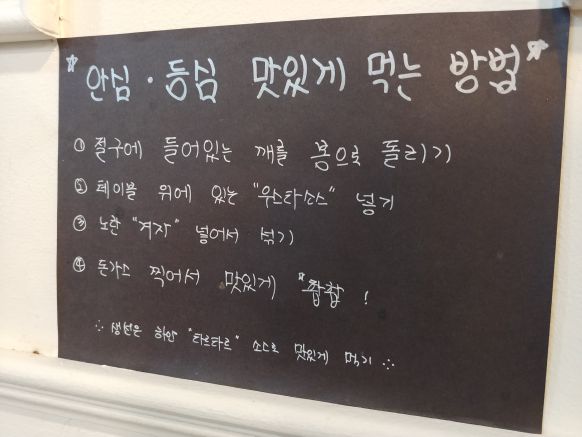 *안심·등심 맛있게 먹는 방법*
① 절구에 들어있는 깨를 봉으로 돌리기
② 테이블 위에 있는 "우스타소스" 넣기
③ 노란 "겨자" 넣어서 섞기
④ 돈가스 찍어서 맛있게 "찹찹!
∴ 생선은 하얀 "타르타르" 소스로 맛있게 먹기 ∴